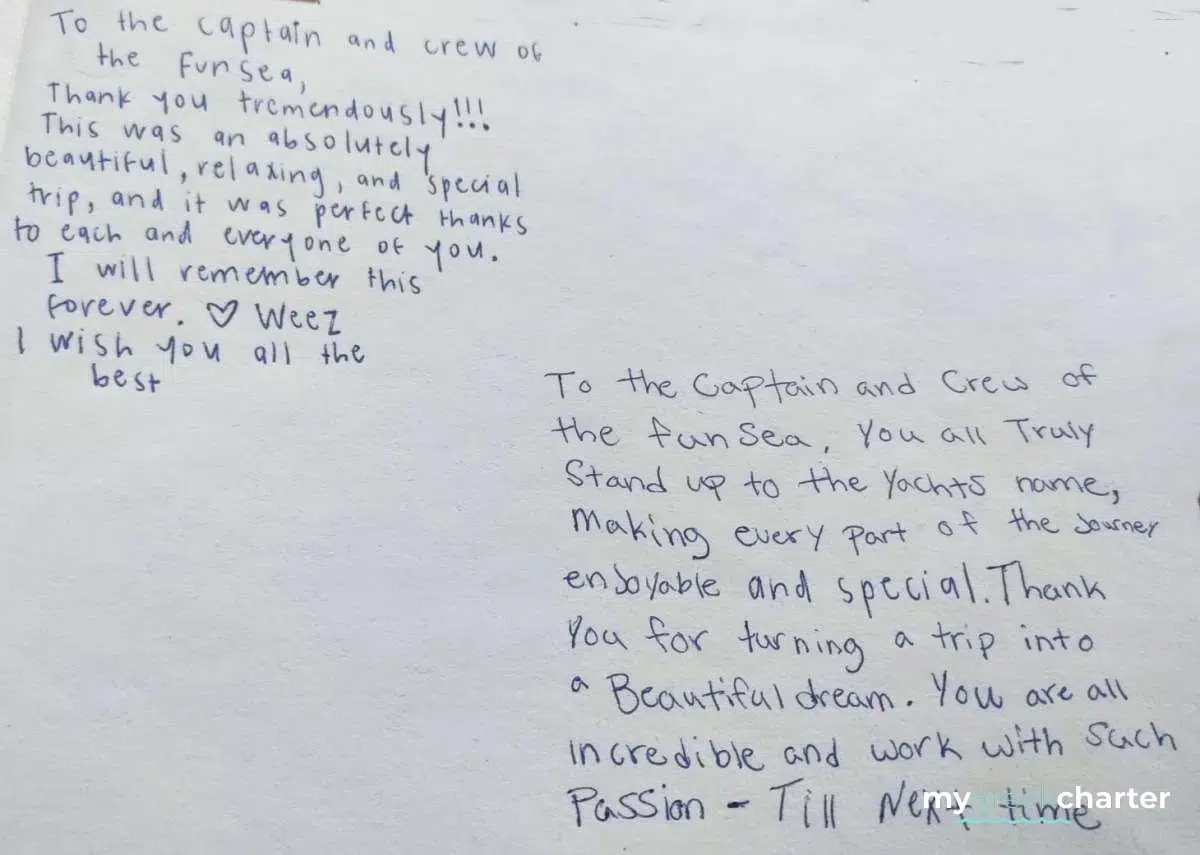 To the captain and crew of
the Funsea,
Thank you tremendously!!!
This was an absolutely
beautiful, relaxing, and special
trip, and it was perfect thanks
to each and everyone of you.
I will remember this
forever. ♡ Weez
I wish you all the
best
To the Captain and Crew of
the fun Sea, You all Truly
Stand up to the Yachts name,
Making every part of the Journey
enjoyable and special. Thank
You for turning a trip into
a Beautiful dream. You are all
incredible and work with such
Passion - Till Next time
mygreekcharter